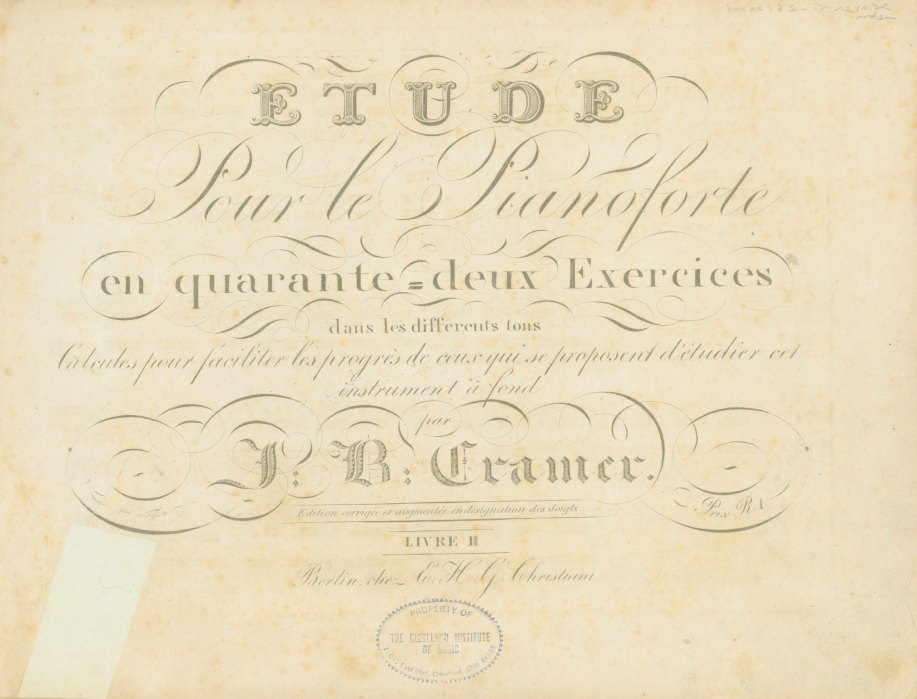 books 1 & 2 - in reverse
order
ETUDE
Pour le Pianoforte
en quarante=deux Exercices
dans les differents tons
Calcules pour faciliter les progrès de ceux qui se proposent d'étudier cet
instrument à fond
par
J: B: Cramer.
Prix R 1.
Edition corrigée et augmentée en designation des doigts.
LIVRE II
Berlin, che E. H. G. Christiani
PROPERTY OF
THE CLEVELAND INSTITUTE
OF MUSIC
East Blvd, Cleveland, Ohio 44106